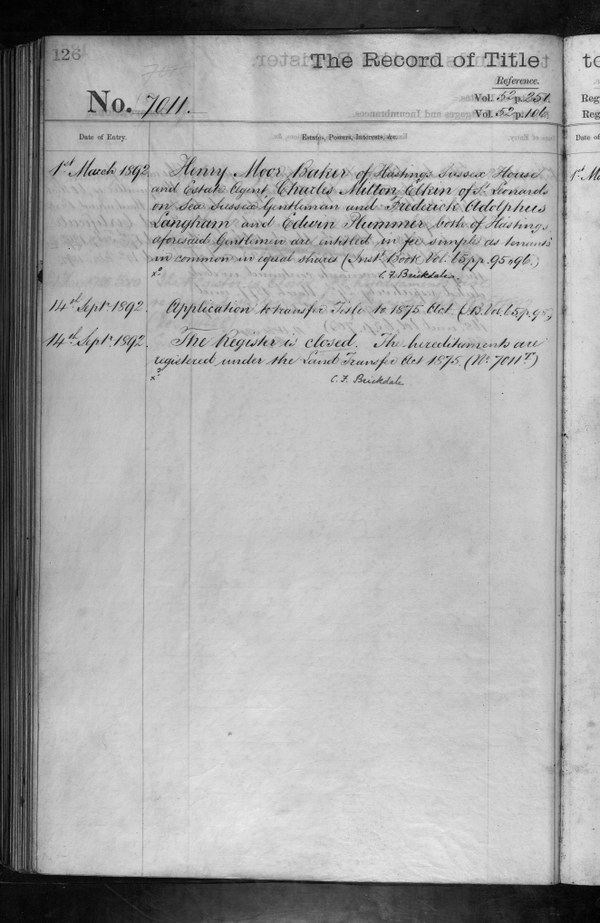 126
The Record of Title
Reference.
No. 7011.
Vol. 52 p. 251.
Vol. 52 p. 106.
Date of Entry.
Estates, Powers, Interests, &c.
1st March 1892.
Henry Moor Baker of Hastings Sussex House
and Estate Agent, Charles Mitton Elkin of St. Leonards
on Sea Sussex Gentleman and Frederick Adolphus
Langham and Edwin Plummer both of Hastings
aforesaid Gentlemen are entitled in fee simple as tenants
in common in equal shares (Inst. Book Vol. 65 pp. 95 & 96.)
C. F. Brickdale.
14th Sept. 1892.
Application to transfer Title to 1875 Act. (I.B. Vol. 65 p. 98)
14th Sept. 1892.
The Register is closed. The hereditaments are
registered under the Land Transfer Act 1875. (No. 7011 T.)
C. F. Brickdale
to
Reg
Reg
Date of
1st Ma